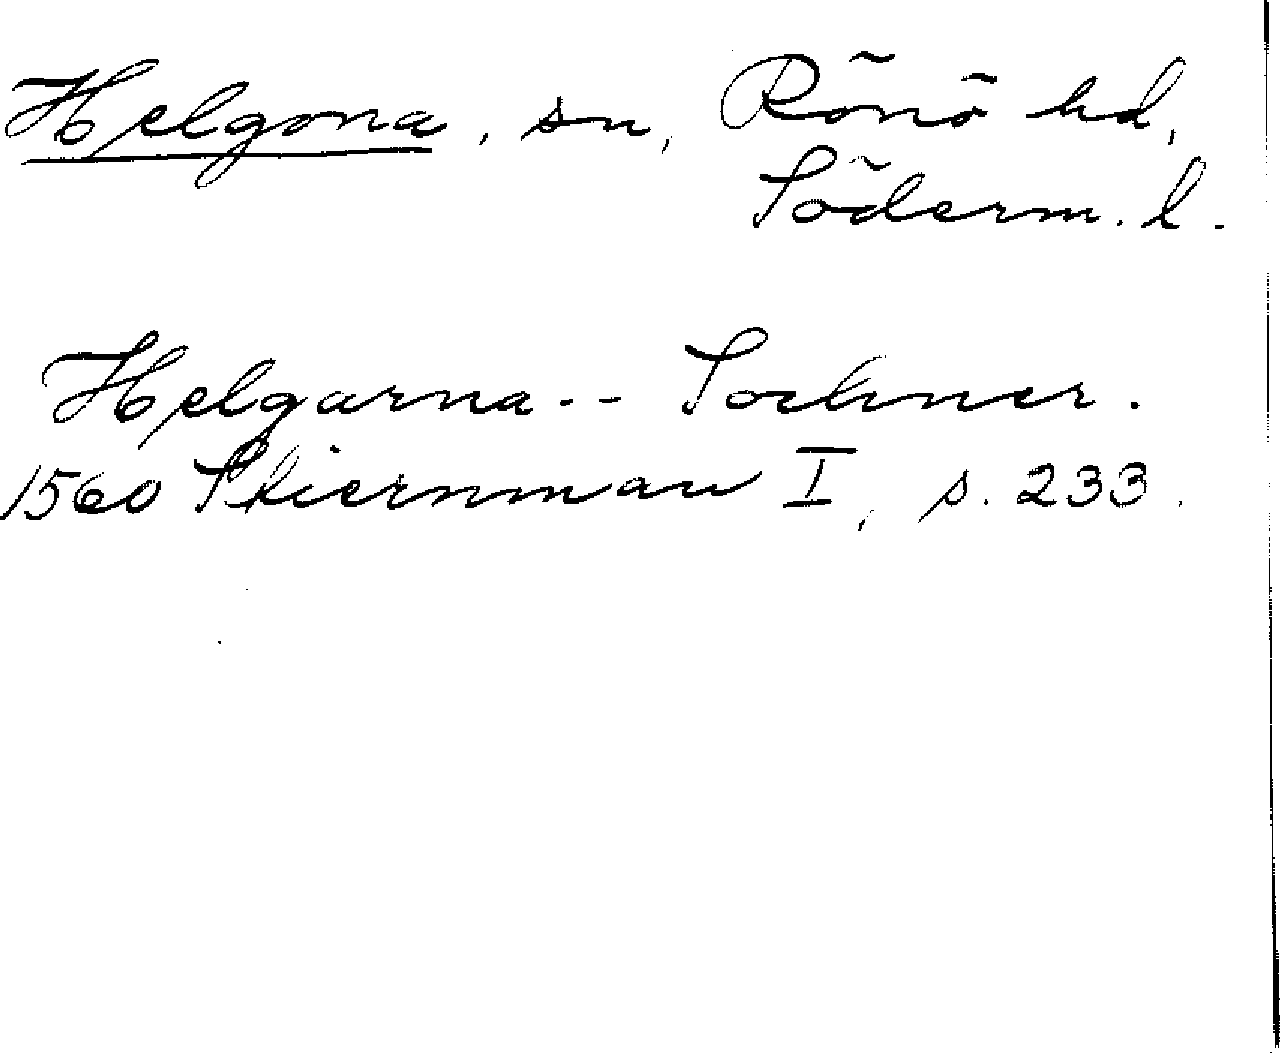 Helgona, sn, Rönö hd,
Söderm. l.
Helgarna-- Sochner.
1560 Stiernman I, s. 233.